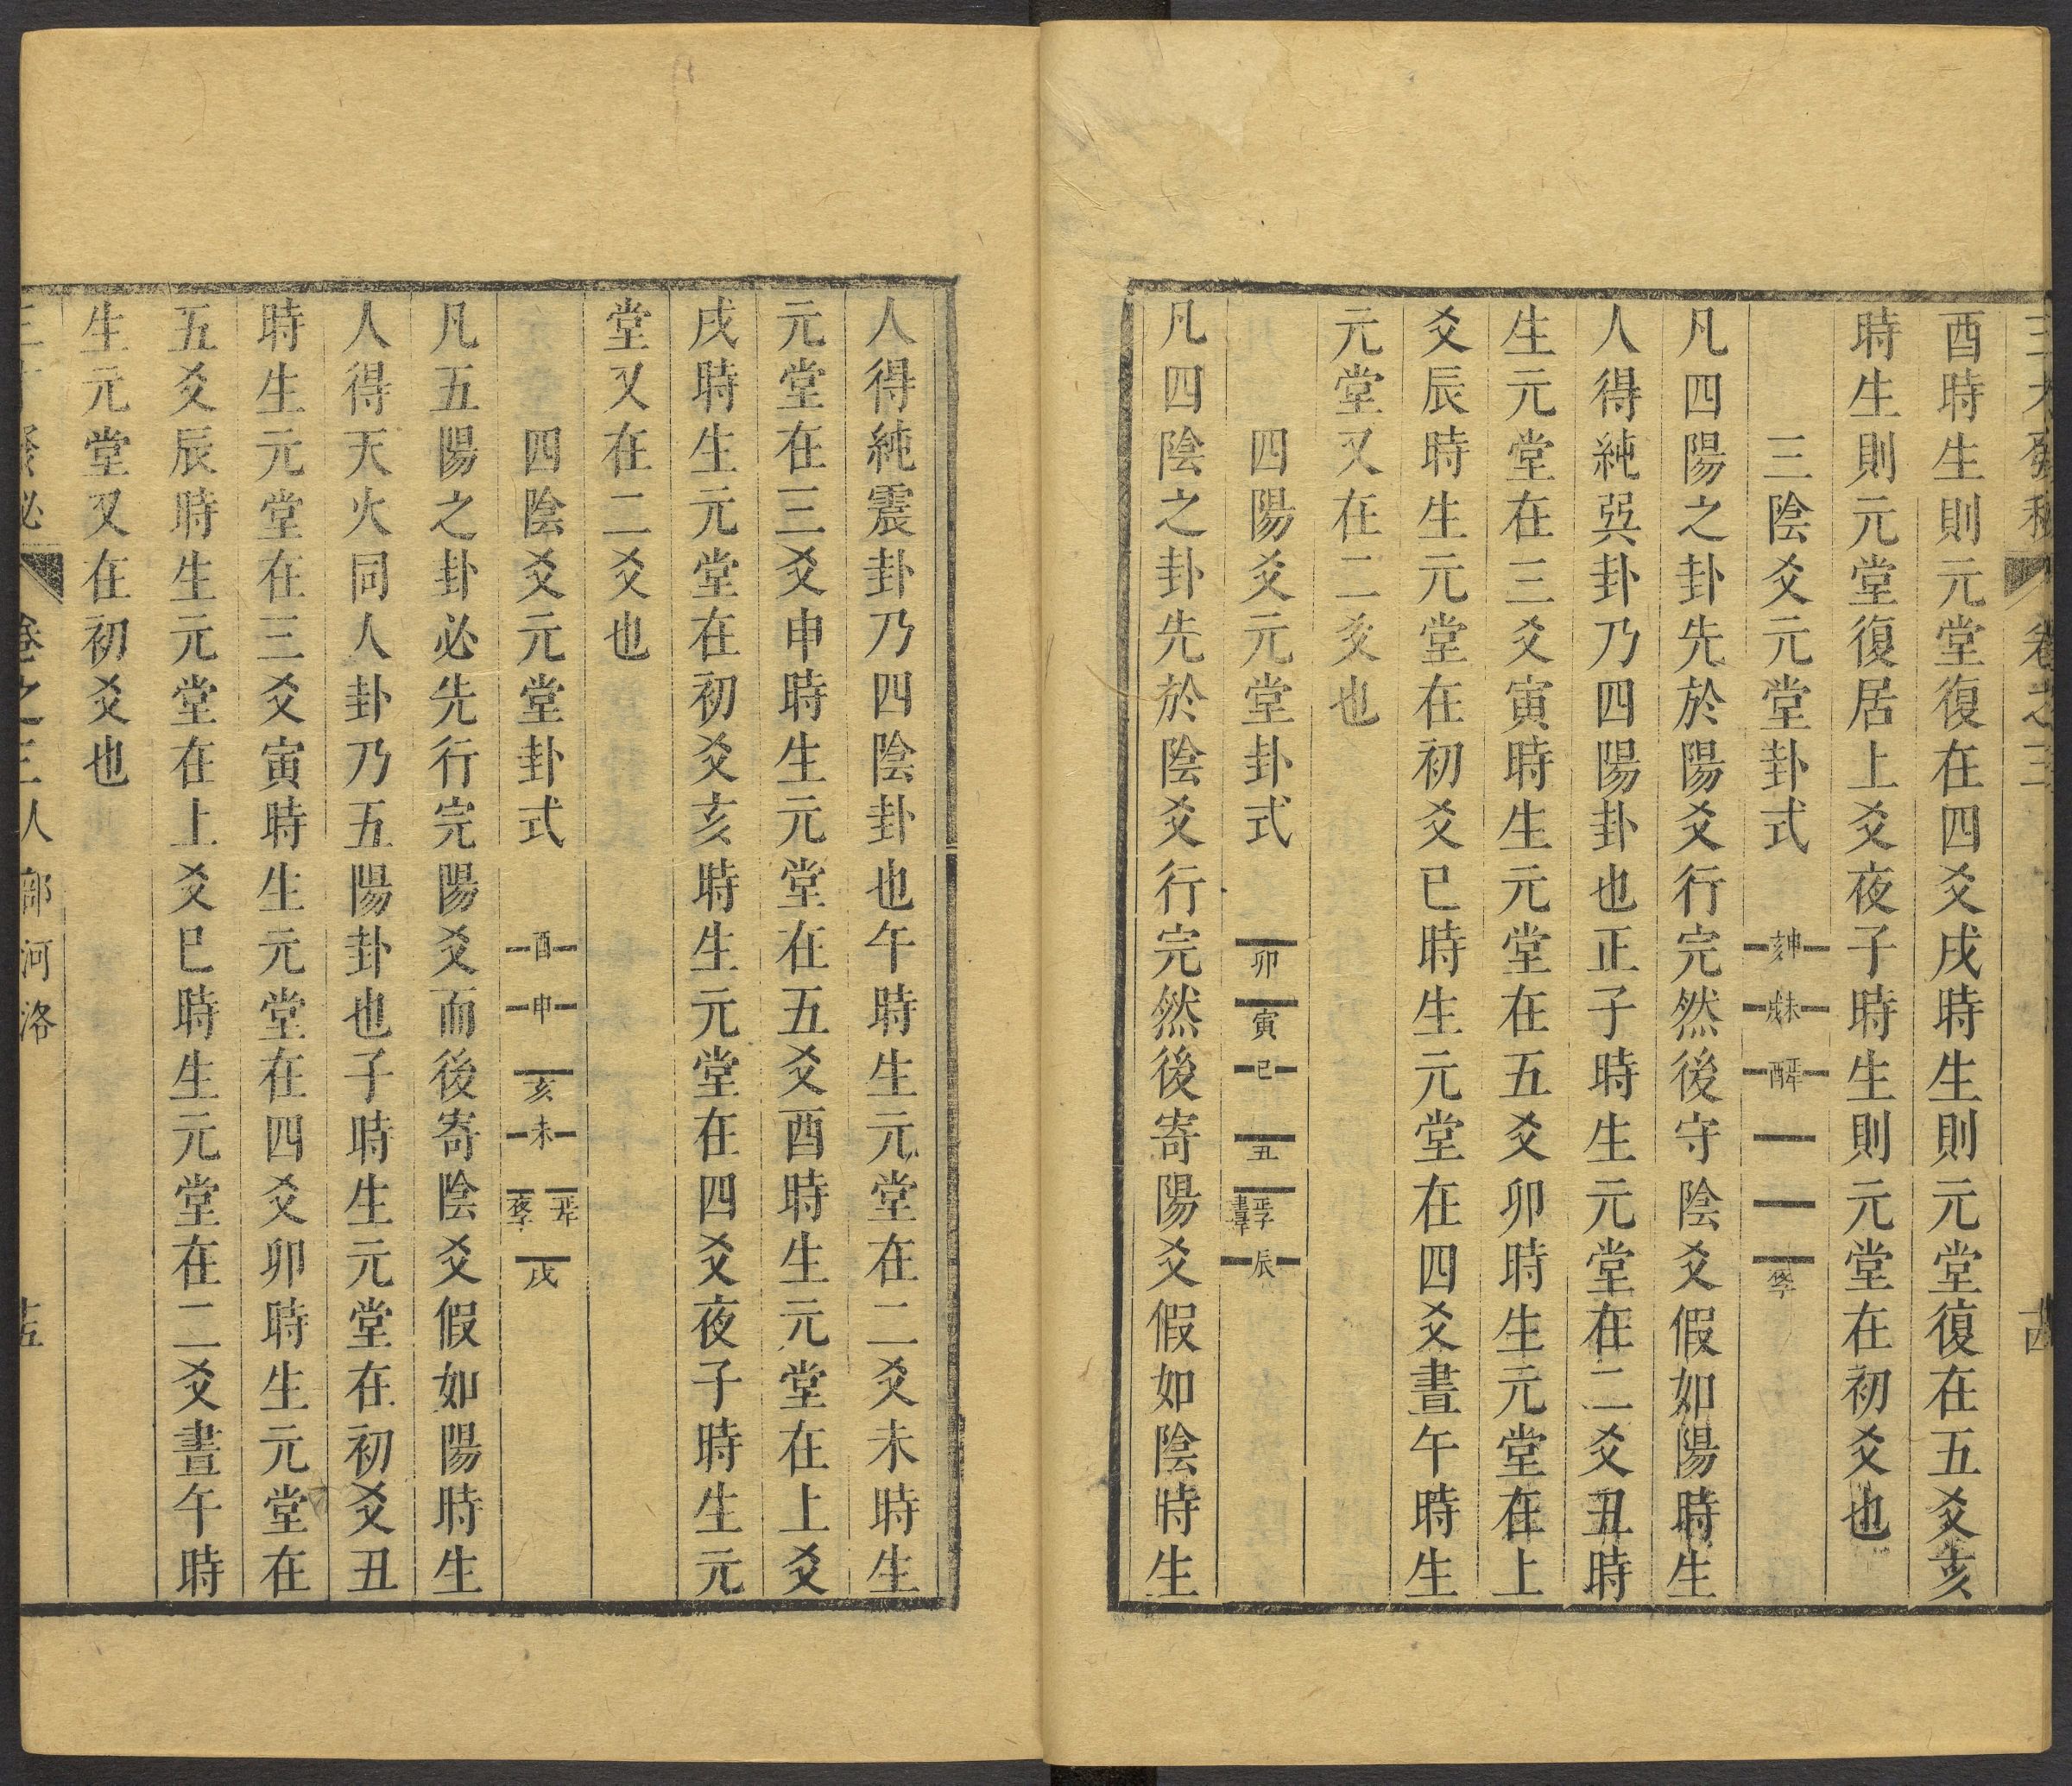 卷之三
酉時生則元堂復在四爻戌時生則元堂復在五爻亥
時生則元堂復居上爻夜子時生則元堂在初爻也
三陰爻元堂卦式
凡四陽之卦先於陽爻行完然後守陰爻假如陽時生
人得純巽卦乃四陽卦也正子時生元堂在二爻丑時
生元堂在三爻寅時生元堂在五爻卯時生元堂在上
爻辰時生元堂在初爻已時生元堂在四爻晝午時生
元堂又在二爻也
四陽爻元堂卦式 卯 寅 已 丑 正子 晝午 辰
凡四陰之卦先於陰爻行完然後寄陽爻假如陰時生
人得純震卦乃四陰卦也午時生元堂在二爻未時生
元堂在三爻申時生元堂在五爻酉時生元堂在上爻
戌時生元堂在初爻亥時生元堂在四爻夜子時生元
堂又在二爻也
四陰爻元堂卦式 酉 申 亥 未 正午 夜子 戌
凡五陽之卦必先行完陽爻而後寄陰爻假如陽時生
人得天火同人卦乃五陽卦也子時生元堂在初爻丑
時生元堂在三爻寅時生元堂在四爻卯時生元堂在
五爻辰時生元堂在上爻巳時生元堂在二爻晝午時
生元堂又在初爻也
卷之三人部河洛